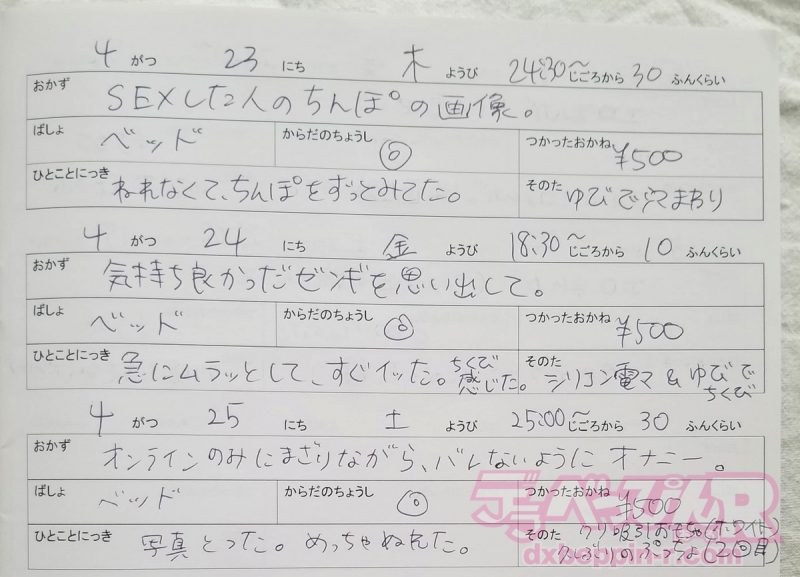 4 がつ 23 にち 木 ようび 24:30〜じごろから 30 ふんくらい
おかず SEXした人のちんぽの画像。
ばしょ ベッド からだのちょうし ◎ つかったおかね ¥500
ひとことにっき ねれなくて、ちんぽをずっとみてた。 そのた ゆびで穴まわり
4 がつ 24 にち 金 ようび 18:30〜じごろから 10 ふんくらい
おかず 気持ち良かったゼンギを思い出して。
ばしょ ベッド からだのちょうし ◎ つかったおかね ¥500
ひとことにっき 急にムラッとして、すぐイッた。ちくび感じた。 そのた シリコン電マ & ゆびでちくび
4 がつ 25 にち 土 ようび 25:00〜じごろから 30 ふんくらい
おかず オンラインのみにまざりながら、バレないようにオナニー。
ばしょ ベッド からだのちょうし ◎ つかったおかね ¥500
ひとことにっき 写真とった。めっちゃぬれた。 そのた クリ吸引おもちゃ(ホワイト)
久しぶりのぷっちょ(2回目)
デラべっぴんR
dxbeppin-r.com